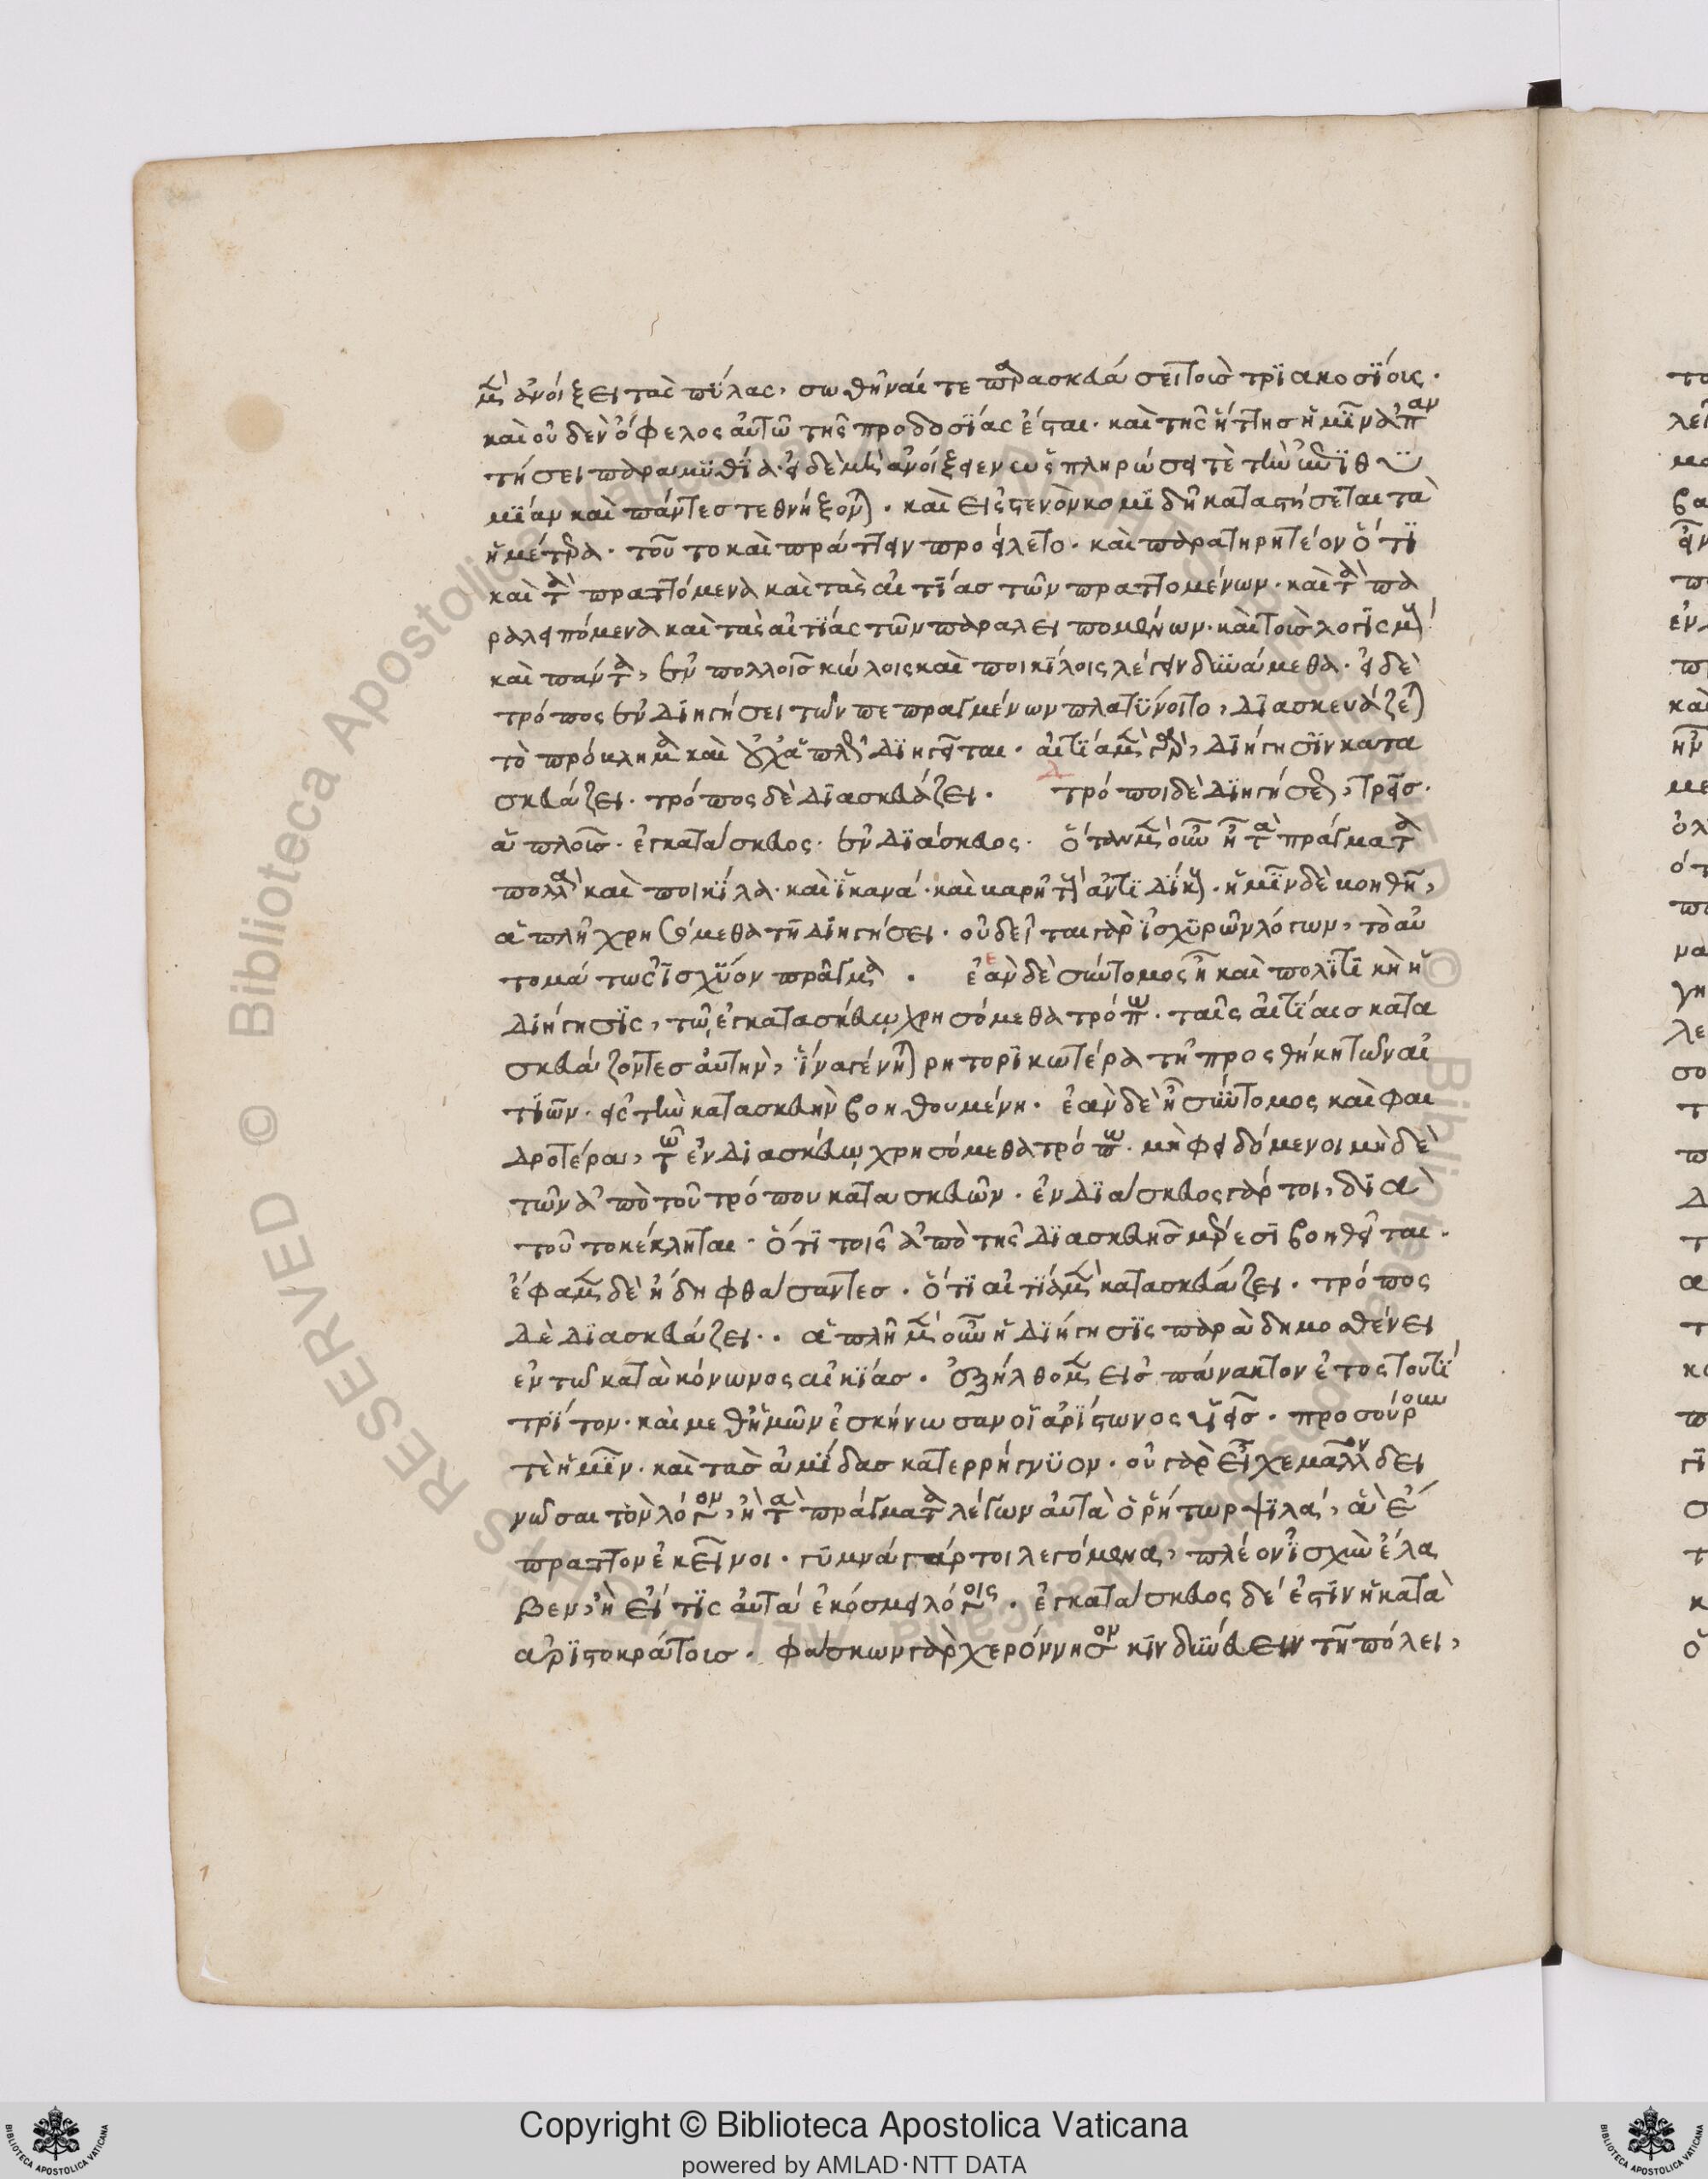 μὲν ἀνοίξει τὰς πύλας, σωθῆναί τε παρασκευάσει τοῖς τριακοσίοις.
καὶ οὐδὲν ὄφελος αὐτῶ τῆς προδοσίας ἔσται. καὶ τῆς ἥττης ἡμῖν ἀπαν
τήσει παραμυθία. εἰ δὲ μὴ ἀνοίξειεν
μίαν καὶ πάντες τεθνήξονται. καὶ εἰς στενὸν κομιδῆ καταστήσεται τὰ
ἡμέτερα. τοῦτο καὶ πράττειν προείλετο. καὶ παρατηρητέον ὅτι
καὶ τὰ πραττόμενα καὶ τὰς αἰτίας τῶν πραττομένων. καὶ τὰ πα
ραλειπόμενα καὶ τὰς αἰτίας τῶν παραλειπομένων. καὶ τοῖς λογισμοῖς
καὶ πάντα, ἐν πολλοῖς κώλοις καὶ ποικίλοις λέγειν δυνάμεθα. εἰ δὲ
τρόπος ἐν διηγήσει τῶν πεπραγμένων πλατύνοιτο, διασκευάζεται
τὸ πρόκλημα καὶ οὐχ ἁπλῶς διηγεῖται. αἰτία μὲν γὰρ, διήγησιν κατα
σκευάζει. τρόπος δὲ διασκευάζει. τρόποι δὲ διηγήσεως, τρεῖς.
ἁπλοῦς. ἐγκατάσκευος. ἐνδιάσκευος. ὅταν μὲν οὖν ἦ τὰ πράγματα
πολλὰ καὶ ποικίλα. καὶ ἱκανά. ἡμῖν δὲ βοηθῆ,
ἁπλῆ χρησόμεθα τῆ διηγήσει. οὐ δεῖται γὰρ ἰσχυρῶν λόγων, τὸ αὐ
τομάτως ἰσχύον πρᾶγμα. ἐὰν δὲ σύντομος ἦ καὶ πολιτικὴ ἡ
διήγησις, τῶ ἐγκατασκεύω χρησόμεθα τρόπω. ταῖς αἰτίαις κατα
σκευάζοντες αὐτὴν, ἵνα γένηται ρητορικωτέρα τῆ προσθήκη τῶν αἰ
τιῶν. εἰς τὴν κατασκευὴν βοηθουμένη. ἐὰν δὲ ἦ σύντομος καὶ φαι
δροτέρα, τῶ ἐνδιασκεύω χρησόμεθα τρόπω. μὴ φειδόμενοι μὴ δὲ
τῶν ἀπὸ τοῦ τρόπου κατασκευῶν. ἐνδιάσκευος γάρ τοι, διὰ
τοῦτο κέκληται. ὅτι τοῖς ἀπὸ τῆς διασκευῆς μέρεσι βοηθεῖται.
ἔφαμεν δὲ ἤδη φθάσαντες. ὅτι αἰτία μὲν κατασκευάζει. τρόπος
δὲ διασκευάζει.. ἁπλῆ μὲν οὖν ἡ διήγησις παρὰ δημοσθένει
ἐν τῶ κατὰ κόνωνος αἰκίας. ἐξήλθομεν εἰς πάνακτον ἔτος τουτὶ
τρίτον. καὶ μεθ' ἡμῶν ἐσκήνωσαν οἱ ἀρίστωνος υἱεῖς. προσούρουν
τὲ ἡμῖν. καὶ τὰς ἀμίδας κατερρήγνυον. οὐ γὰρ εἶχε μᾶλλον δει
νῶσαι τὸν λόγον, ἢ τὰ πράγματα λέγων αὐτὰ ὁ ῥήτωρ ψιλά, ἃ ἔ
πραττον ἐκεῖνοι. γυμνά γάρ τοι λεγόμενα, πλέον ἰσχὺν ἔλα
βεν, ἢ εἴ τις αὐτά ἐκόσμει λόγοις. ἐγκατάσκευος δέ ἐστιν ἡ κατὰ
ἀριστοκράτους. φάσκων γὰρ χερόννησον κινδυνεύειν τῆ πόλει,